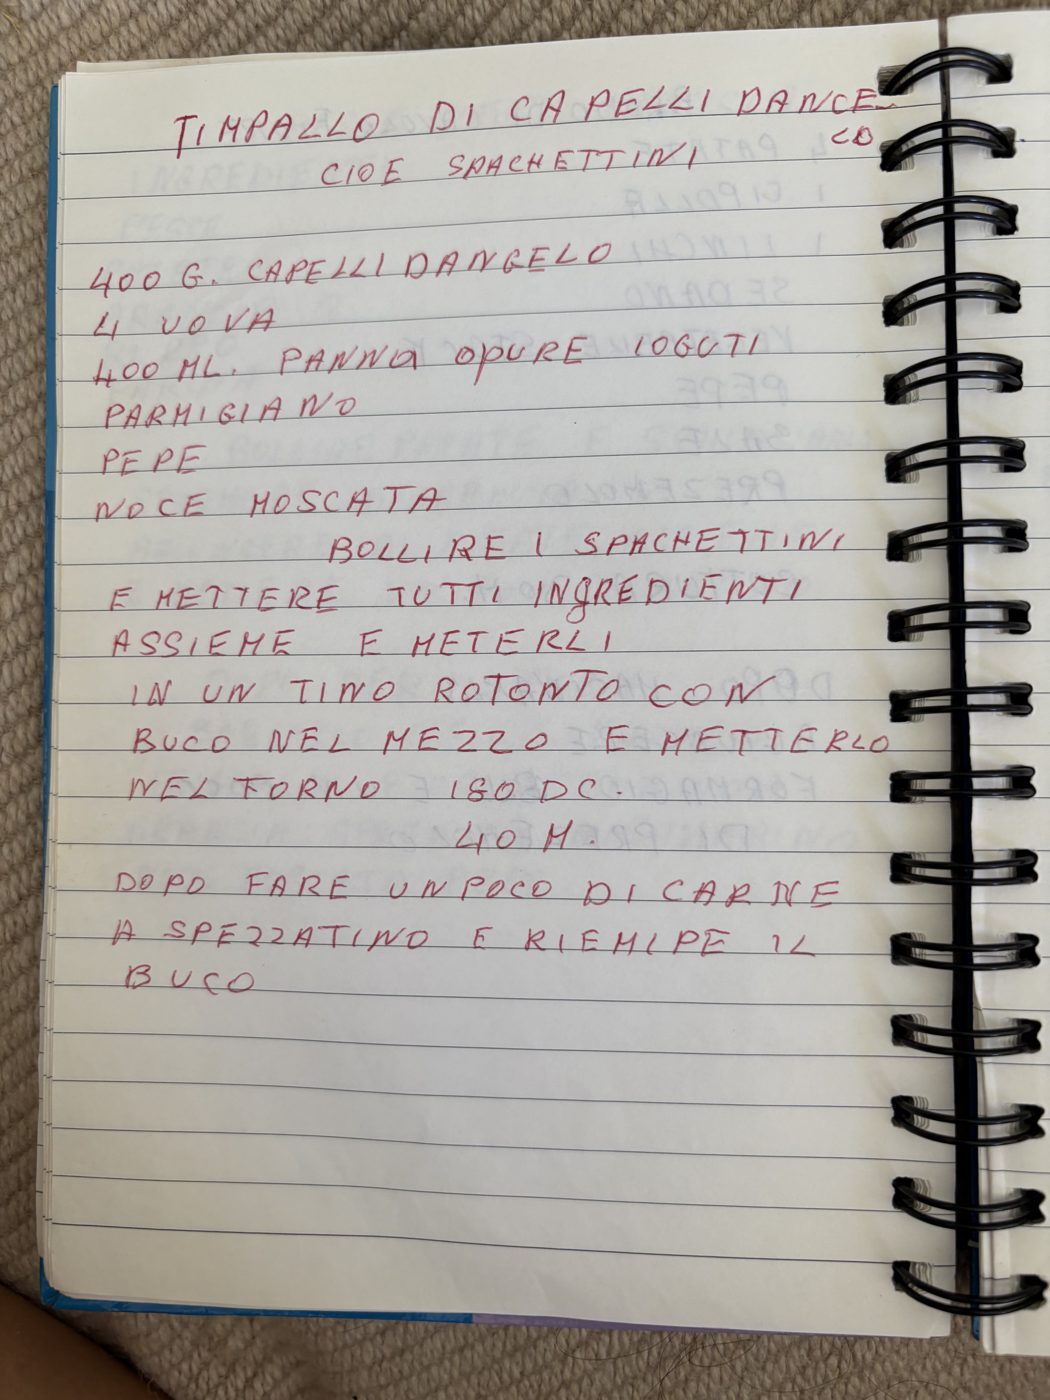 TIMPALLO DI CAPELLI DANCE-
LO
CIOE SPACHETTINI
400 G. CAPELLI DANGELO
4 UOVA
400 ML. PANNA OPURE IOGUTI
PARMIGIANO
PEPE
NOCE MOSCATA
BOLLIRE I SPACHETTINI
E METTERE TUTTI INGREDIENTI
ASSIEME E METERLI
IN UN TINO ROTONTO CON
BUCO NEL MEZZO E METTERLO
NEL FORNO 180 DC.
40 M.
DOPO FARE UN POCO DI CARNE
A SPEZZATINO E RIEMIPE IL
BUCO